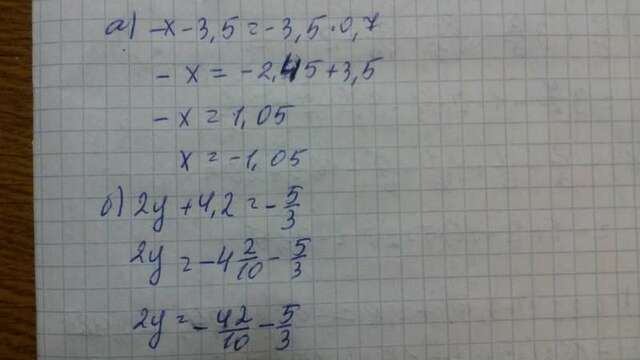 а) -x - 3,5 = -3,5 · 0,7
- x = -2,45 + 3,5
- x = 1,05
x = -1,05
б) 2y + 4,2 = - 5/3
2y = -4 2/10 - 5/3
2y = - 42/10 - 5/3